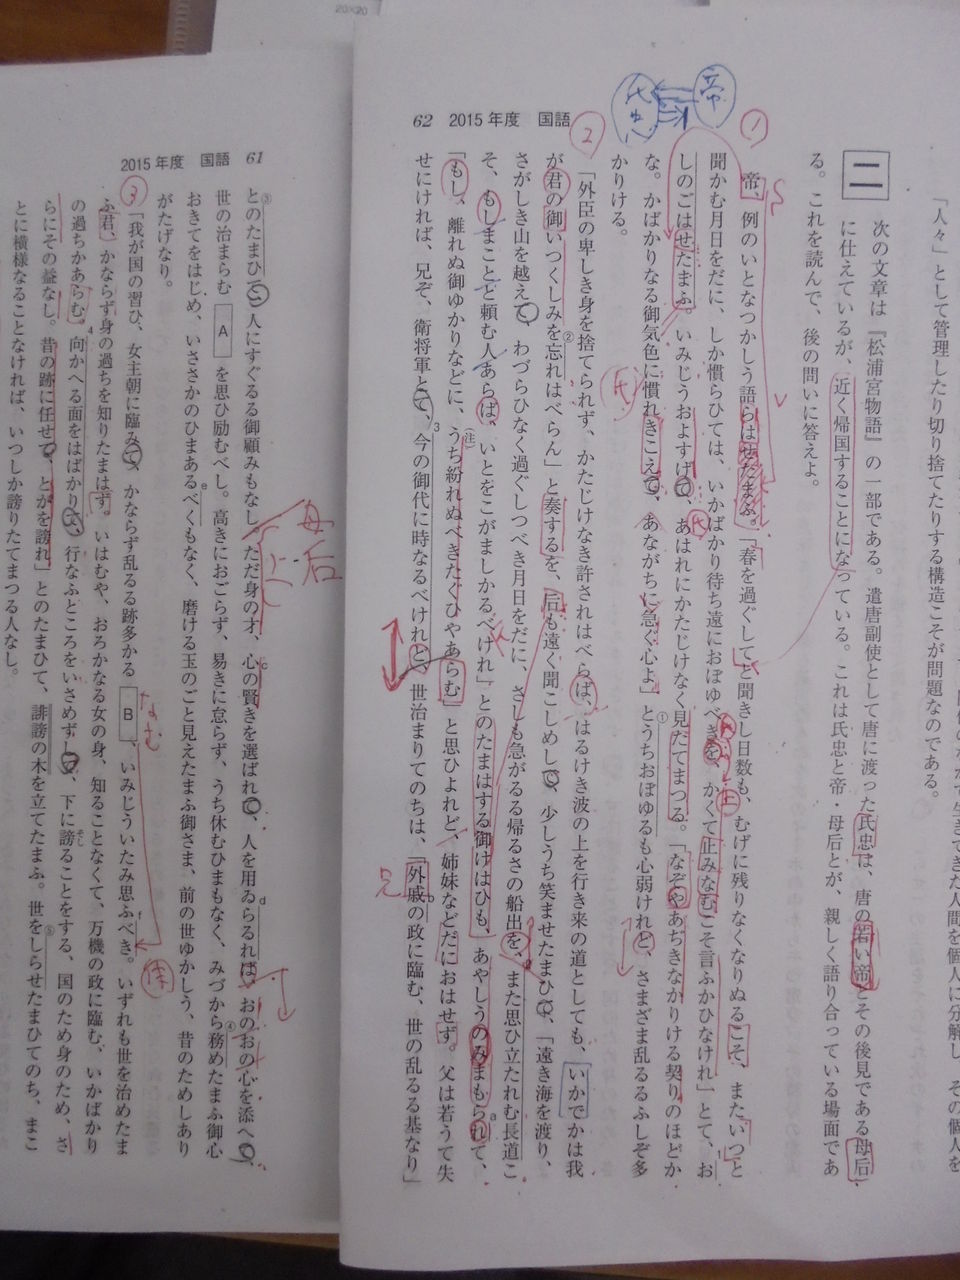 20×20
「人々」として管理したり切り捨てたりする構造こそが問題なのである。
二
次の文章は『松浦宮物語』の一部である。遣唐副使として唐に渡った氏忠は、唐の若い帝とその後見である母后
に仕えているが、近く帰国することになっている。これは氏忠と帝・母后とが、親しく語り合っている場面であ
る。これを読んで、後の問いに答えよ。
62 2015年度 国語
帝
氏忠
①
帝、例のいとなつかしう語らはせたまふ。「春を過ぐしてと聞きし日数も、むげに残りなくなりぬるこそ、またいつと
聞かむ月日をだに、しか慣らひては、いかばかり待ち遠におぼゆべきを、かくて止みなむこそ言ふかひなけれ」とて、お
しのごはせたまふ。いみじうおよすけて、あはれにかたじけなく見たてまつる。「なぞやあぢきなかりける契りのほどか
な。かばかりなる御気色に慣れきこえて、あながちに急ぐ心よ」とうちおぼゆるも心弱けれど、さまざま乱るるふしぞ多
かりける。
②
「外臣の卑しき身を捨てられず、かたじけなき許されはべらば、はるけき波の上を行き来の道としても、いかでかは我
が君の御いつくしみを忘れはべらん」と奏するを、后も遠く聞こしめして、少しうち笑ませたまひて、「遠き海を渡り、
さがしき山を越えて、わづらひなく過ぐしつべき月日をだに、さしも急がるる帰るさの船出を、また思ひ立たれむ長道こ
そ、もしまことと頼む人あらば、いとをこがましかるべけれ」とのたまはする御けはひも、あやしうのみまもられて、
「もし、離れぬ御ゆかりなどに、うち紛れぬべきたぐひやあらむ」と思ひよれど、姉妹などだにおはせず。父は若うて失
せにければ、兄ぞ、衛将軍とて、今の御代に時なるべけれど、世治まりてのちは、「外戚の政に臨む、世の乱るる基なり」
兄
2015年度 国語 61
とのたまひて、人にすぐるる御顧みもなし。ただ身の才、心の賢きを選ばれて、人を用ゐらるれば、おのおの心を添へて、
世の治まらむ A を思ひ励むべし。高きにおごらず、易きに怠らず、うち休むひまもなく、みづから務めたまふ御心
おきてをはじめ、いささかのひまあるべくもなく、磨ける玉のごと見えたまふ御さま、前の世ゆかしう、昔のためしあり
がたげなり。
母后
③
「我が国の習ひ、女主朝に臨みて、かならず乱るる跡多かる B 、いみじういたみ思ふべき。いずれも世を治めたま
ふ君、かならず身の過ちを知りたまはず。いはむや、おろかなる女の身、知ることなくて、万機の政に臨む、いかばかり
の過ちかあらむ。向かへる面をはばかりて、行なふところをいさめずして、下に謗ることをする、国のため身のため、さ
らにその益なし。昔の跡に任せて、とがを謗れ」とのたまひて、誹謗の木を立てたまふ。世をしらせたまひてのち、まこ
とに横様なることなければ、いつしか謗りたてまつる人なし。